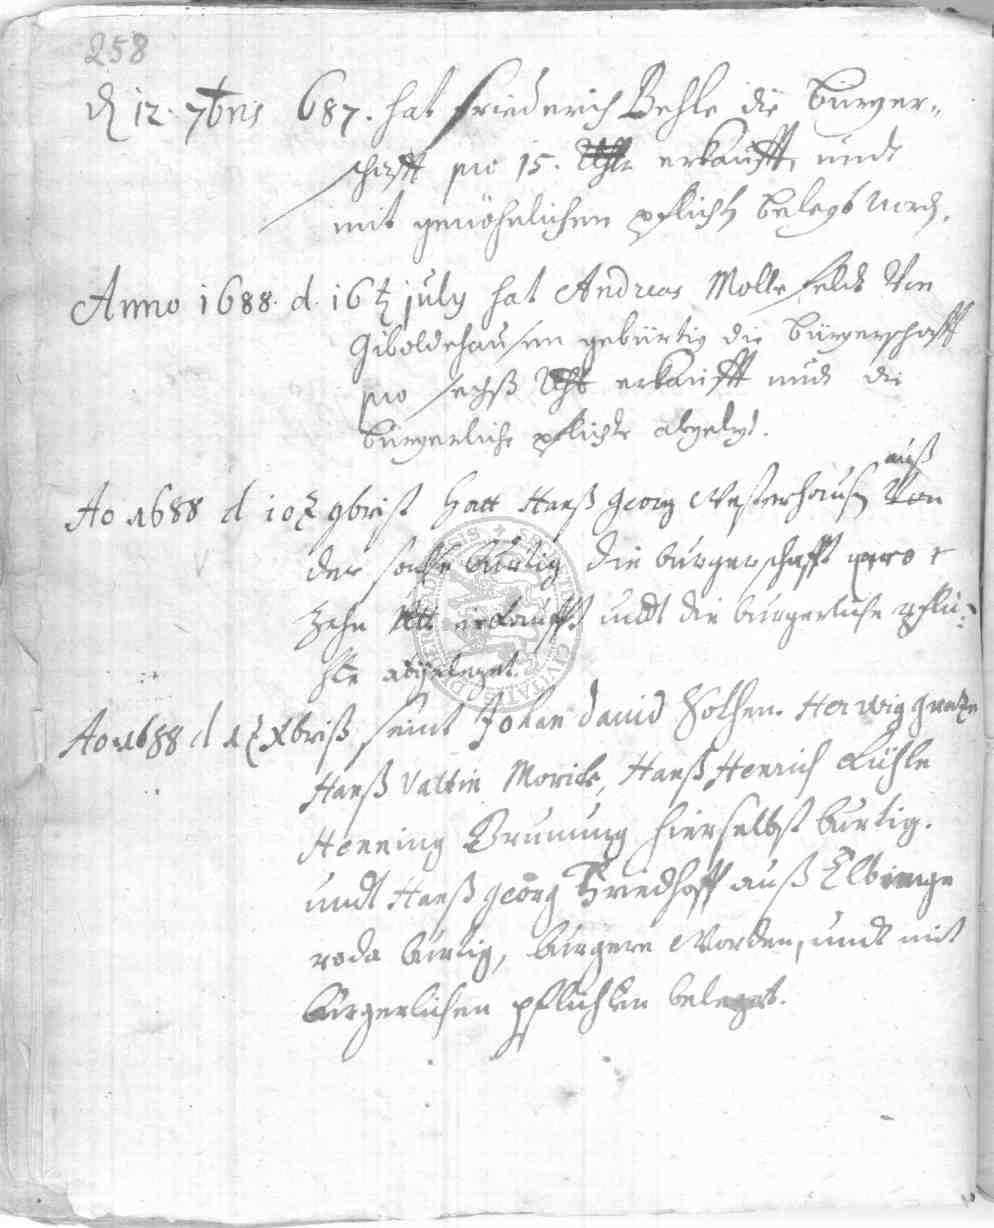 258
d 12. 7bris 687. hat Friederich Behle die Bürger-
schafft pro 15. Rthlr erkaufft, undt
mit gewöhnlichen pflicht belegt word.
Anno 1688. d. 16t july hat Andreas Mollefeldt Von
Giboldehausen gebürtig die Bürgerschafft
pro sechß Rthl erkaufft undt die
bürgerliche pflichte abgelegt.
auß
Ao 1688 d 10t 9brist hatt Hanß Georg Westerhaus Von
der burtig die burgerschafft pro
Zehn Rtl erkaufft undt die burgerliche pfli-
chte abgeleget.
Ao 1688 d 1t Xbriß seint Johan david Herwig
Hanß Valtin Moricke, Hanß Henrich Kühle
Henning Brunung hierselbst burtig.
undt Hanß georg auß Elbinge
roda burtig, bürgere worden, undt mit
bürgerlichen pflichten beleget.